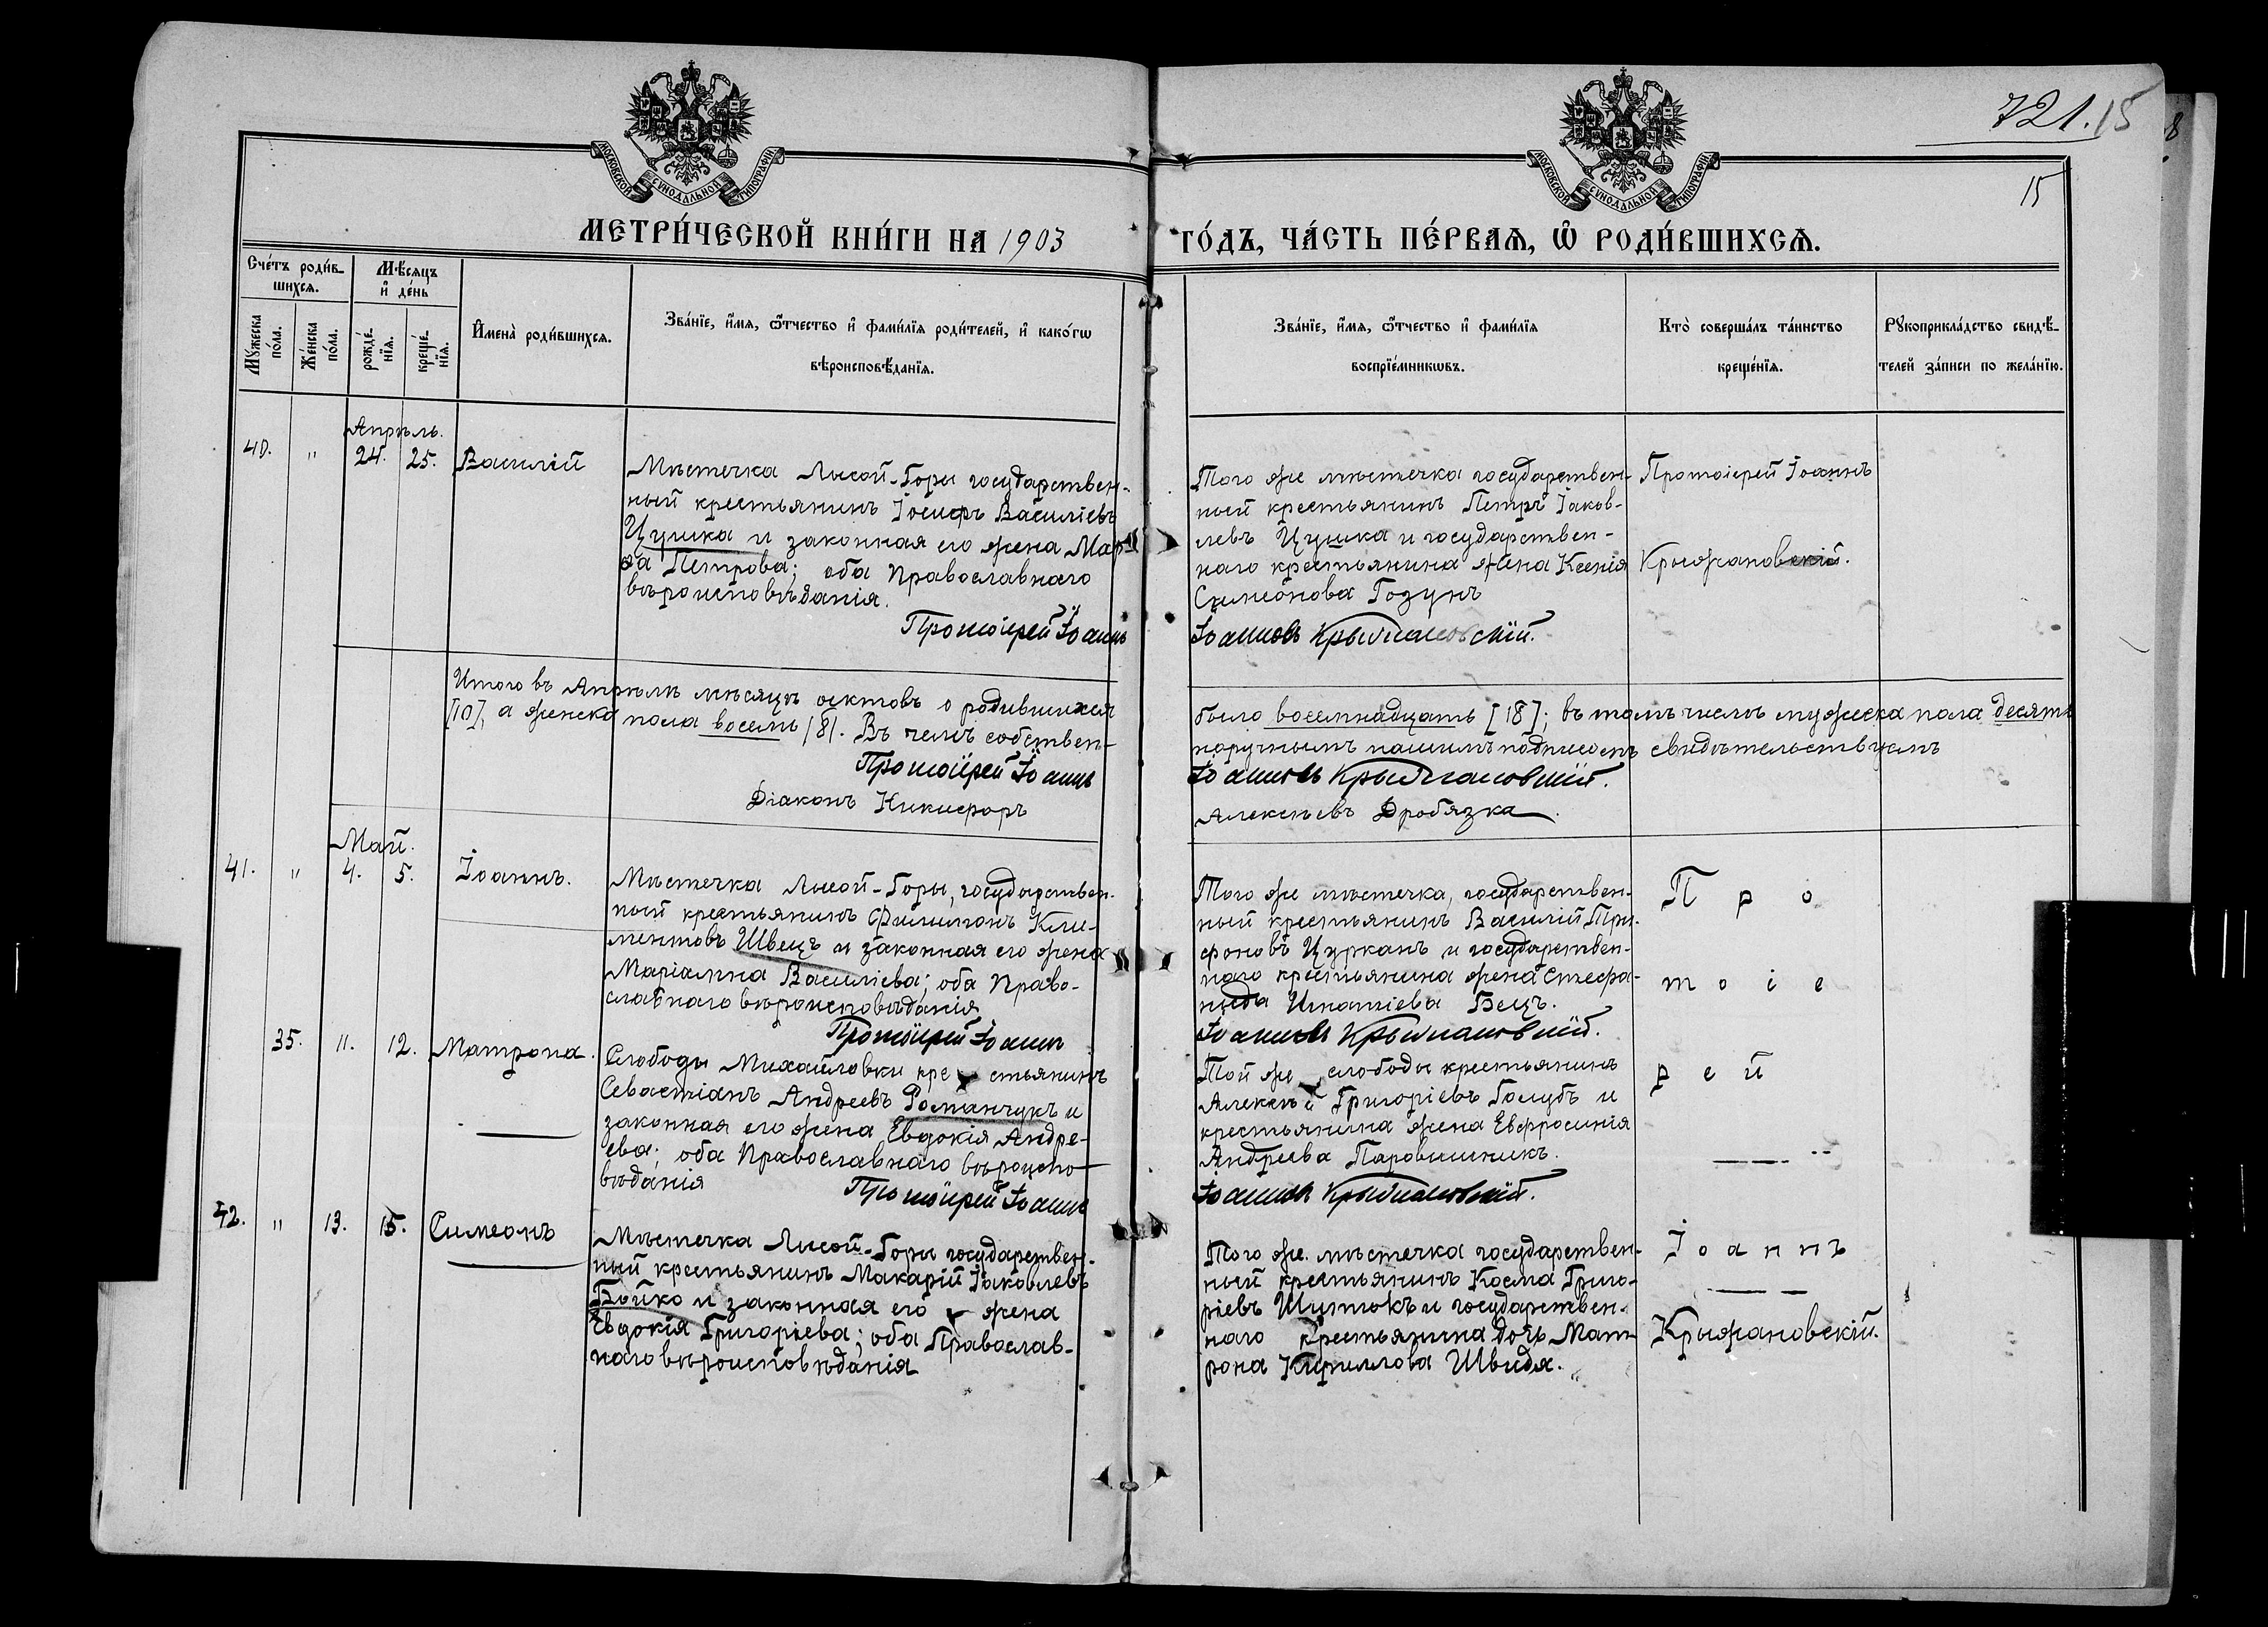 721. 15
15
МОСКОВСКОЙ СѴНОДАЛЬНОЙ ТИПОГРАФІИ
МОСКОВСКОЙ СѴНОДАЛЬНОЙ ТИПОГРАФІИ
МЕТРИ́ЧЕСКОЙ КНИ́ГИ НА 1903
ГО́ДЪ, ЧА́СТЬ ПЕ́РВАѦ, Ѡ҆ РОДИ́ВШИХСѦ.
Сче́тъ роди́в-
шихсѧ.
Мꙋжеска
по́ла.
Же́нска
по́ла.
Мѣ́сяцъ
и҆ де́нь
рожде́-
нїѧ.
креще́-
нїѧ.
И҆мена̀ роди́вшихсѧ.
Зва́нїе, и҆́мѧ, ѻ҆́тчество и҆ фами́лїѧ роди́телей, и҆ како́гѡ
вѣроисповѣ́данїѧ.
Зва́нїе, и҆́мѧ, ѻ҆́тчество и҆ фами́лїѧ
воспрїе́мникѡвъ.
Кто̀ соверша́лъ та́инство
креще́нїѧ.
Рꙋкоприкла́дство свидѣ́-
телей за́писи по жела́нїю.
Апрѣль.
40. " 24. 25. Василій
Мѣстечка Лысой-Горы государствен-
ный крестьянинъ Іосифъ Василіевъ
Цушка и законная его жена Мар-
ѳа Петрова; оба Православнаго
вѣроисповѣданія.
Протоіерей Іоаннъ
Того же мѣстечка государствен-
ный крестьянинъ Петръ Іаков-
левъ Цушка и государствен-
наго крестьянина жена Ксенія
Симеонова Гозунъ
Іоанновъ Крыжановскій.
Протоіерей Іоаннъ
Крыжановскій.
Итого въ Апрѣлѣ мѣсяцѣ актовъ о родившихся
[10], а женска пола восемь [8]. Въ чемъ собствен-
Протоіерей Іоаннъ
Діаконъ Никифоръ
было восемнадцать [18]; въ томъ числѣ мужеска пола десять
норучнымъ нашимъ подписомъ свидѣтельствуемъ
Іоанновъ Крыжановскій.
Алексѣевъ Дробязка.
Май.
41. " 4. 5. Іоаннъ.
Мѣстечка Лысой-Горы, государствен-
ный крестьянинъ Филимонъ Кли-
ментовъ Швецъ и законная его жена
Маріамна Василіева; оба Право-
славнаго вѣроисповѣданія
Протоіерей Іоаннъ
Того же мѣстечка, государствен-
ный крестьянинъ Василій Три-
фоновъ Цурканъ и государствен-
наго крестьянина жена Стефа-
нида Игнатіева Бецъ.
Іоанновъ Крыжановскій.
П р о
т о і е
35. 11. 12. Матрона.
Слободы Михайловки кре стьянинъ
Севастіанъ Андреевъ Романчукъ и
законная его жена Евдокія Андре-
ева; оба Православнаго вѣроиспо-
вѣданія
Протоіерей Іоаннъ
Той же слободы крестьянинъ
Алексѣй Григоріевъ Голубъ и
крестьянина жена Евфросинія
Андреева
Іоанновъ Крыжановскій.
р е й
42. " 13. 15. Симеонъ
Мѣстечка Лысой-Горы государствен-
ный крестьянинъ Макарій Іаковлевъ
Бойко и законная его жена
Евдокія Григоріева; оба Православ-
наго вѣроисповѣданія
Того же мѣстечка государствен-
ный крестьянинъ Косма Григо-
ріевъ и государствен-
наго крестьянина дочь Мат-
рона Кириллова Швидя.
І о а н н ъ
Крыжановскій.